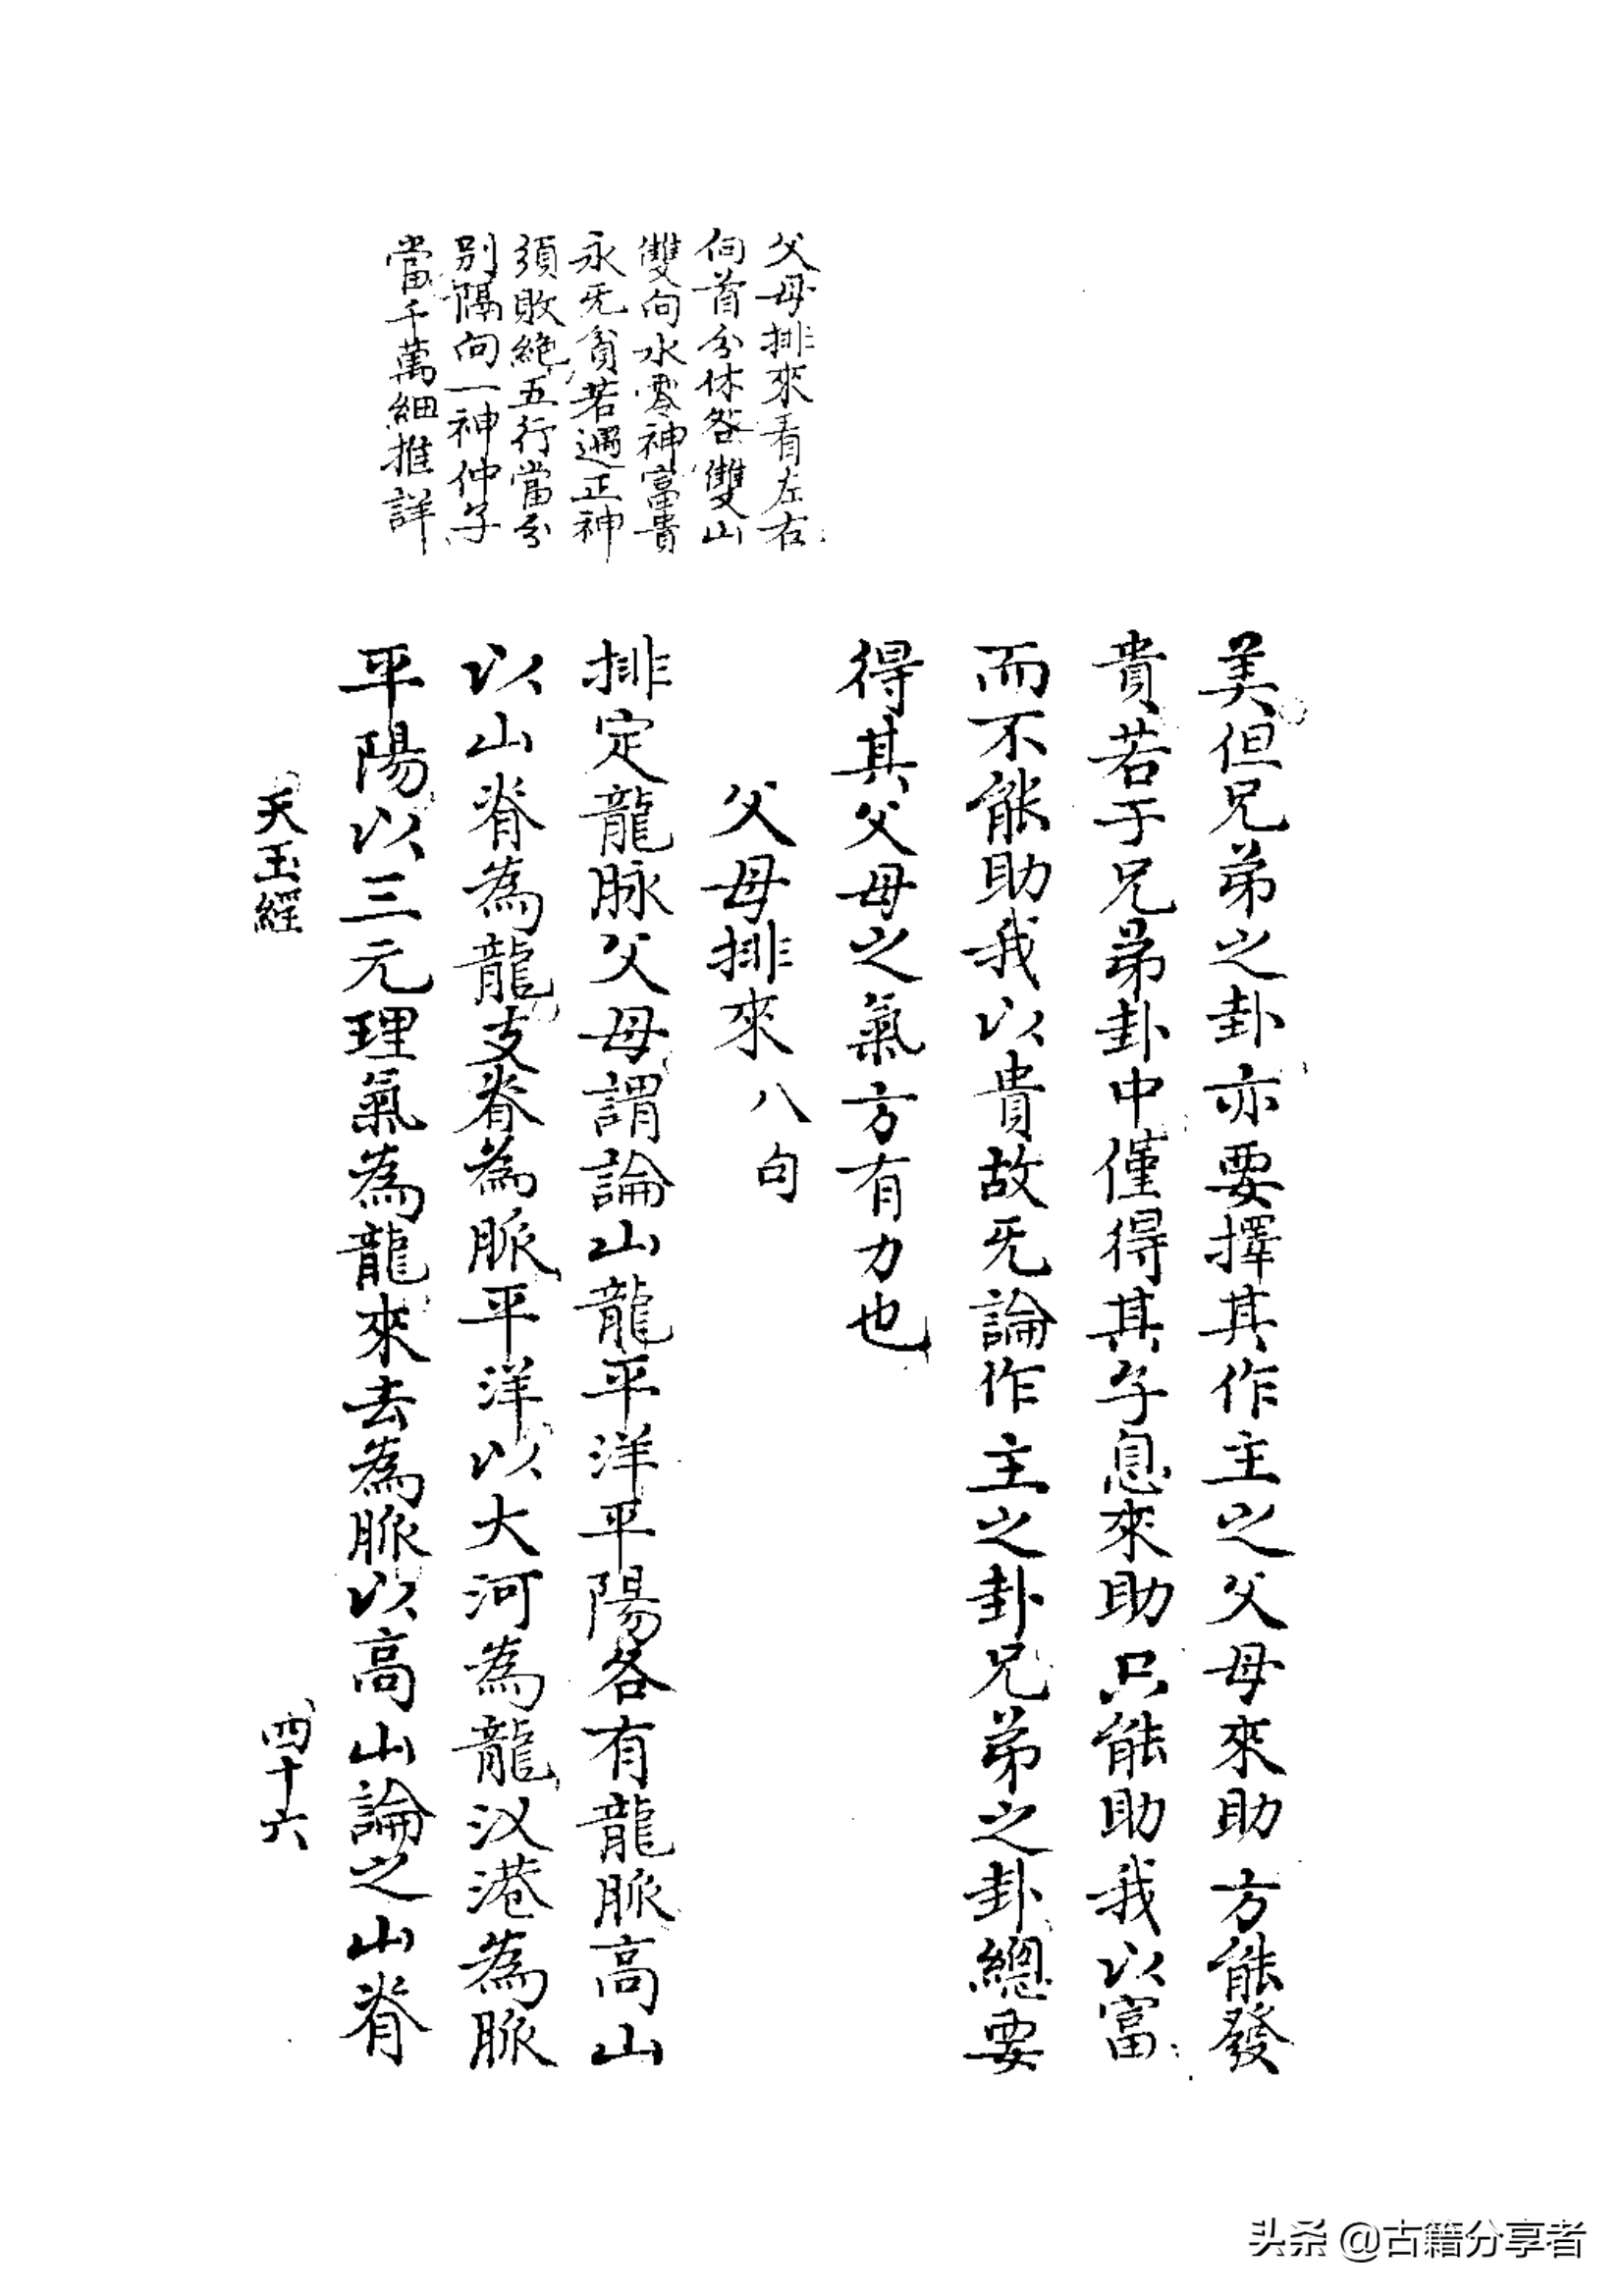 父母排來看左右
向首分休咎雙山
雙向水零神富貴
永旡貧若遇正神
須敗絶五行當分
别隔向一神仲子
當千萬細推詳
美但兄弟之卦亦要擇其作主之父母來助方能發
貴若于兄弟卦中僅得其子息來助只能助我以富
而不能助我以貴故旡論作主之卦兄弟之卦總要
得其父母之氣方有力也
父母排來八句
排定龍脉父母謂論山龍平洋平陽各有龍脈高山
以山脊為龍支脊為脈平洋以大河為龍汊港為脈
平陽以三元理氣為龍來去為脈以高山論之山脊
天玉經
四十六
头条 @古籍分享者